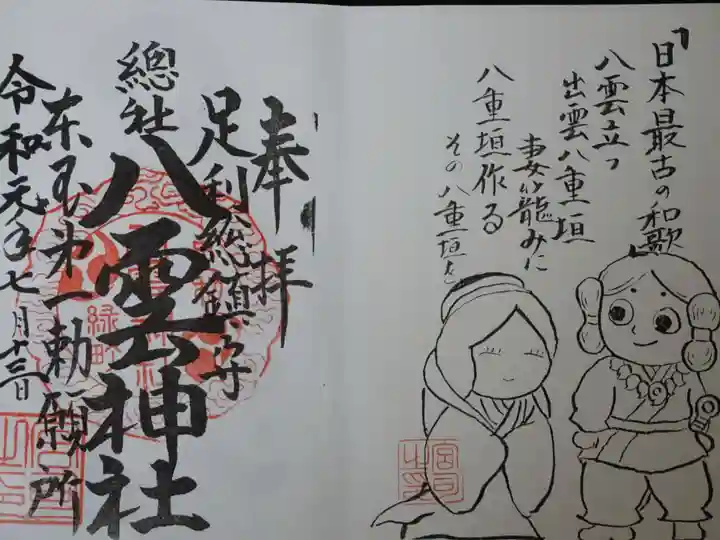 「日本最古の和歌」
八雲立つ
出雲八重垣
妻籠みに
八重垣作る
その八重垣を
宮司之印
奉拝
足利総鎮守
總社
八雲神社
緑町
東国第一勅願所
令和元年七月十三日
宮司之印